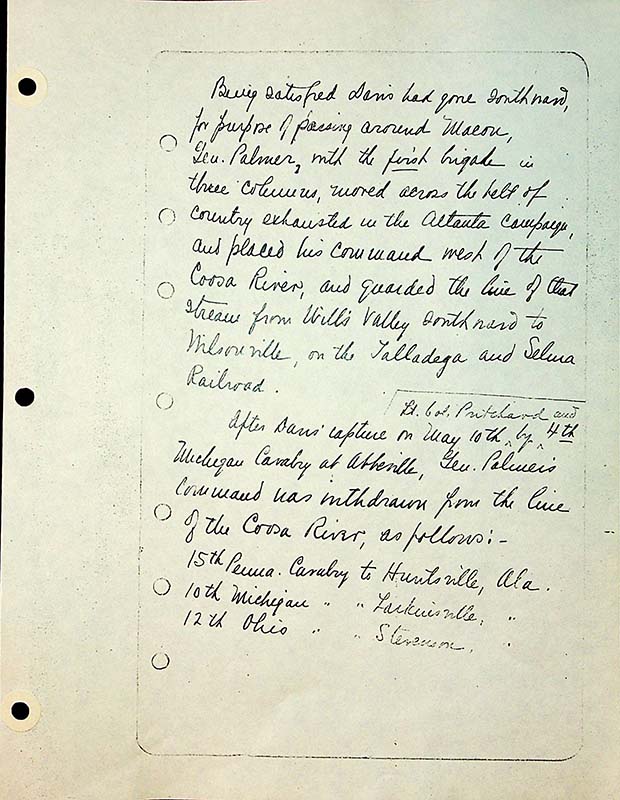 Being satisfied Davis had gone southward,
for purpose of passing around Macon,
Gen. Palmer, with the first brigade in
three columns, moved across the belt of
country exhausted in the Altanta campaign,
and placed his command west of the
Coosa River, and guarded the line of that
stream from Will's Valley southward to
Wilsonville, on the Talladega and Selma
Railroad.
Lt. Col. Pritchard and
After Davis' capture on May 10th by 4th
Michigan Cavalry at Abbeville, Gen. Palmer's
command was withdrawn from the line
of the Coosa River, as follows:-
15th Penna. Cavalry to Huntsville, Ala.
10th Michigan " " Larkinsville, "
12th Ohio " " Stevenson, "